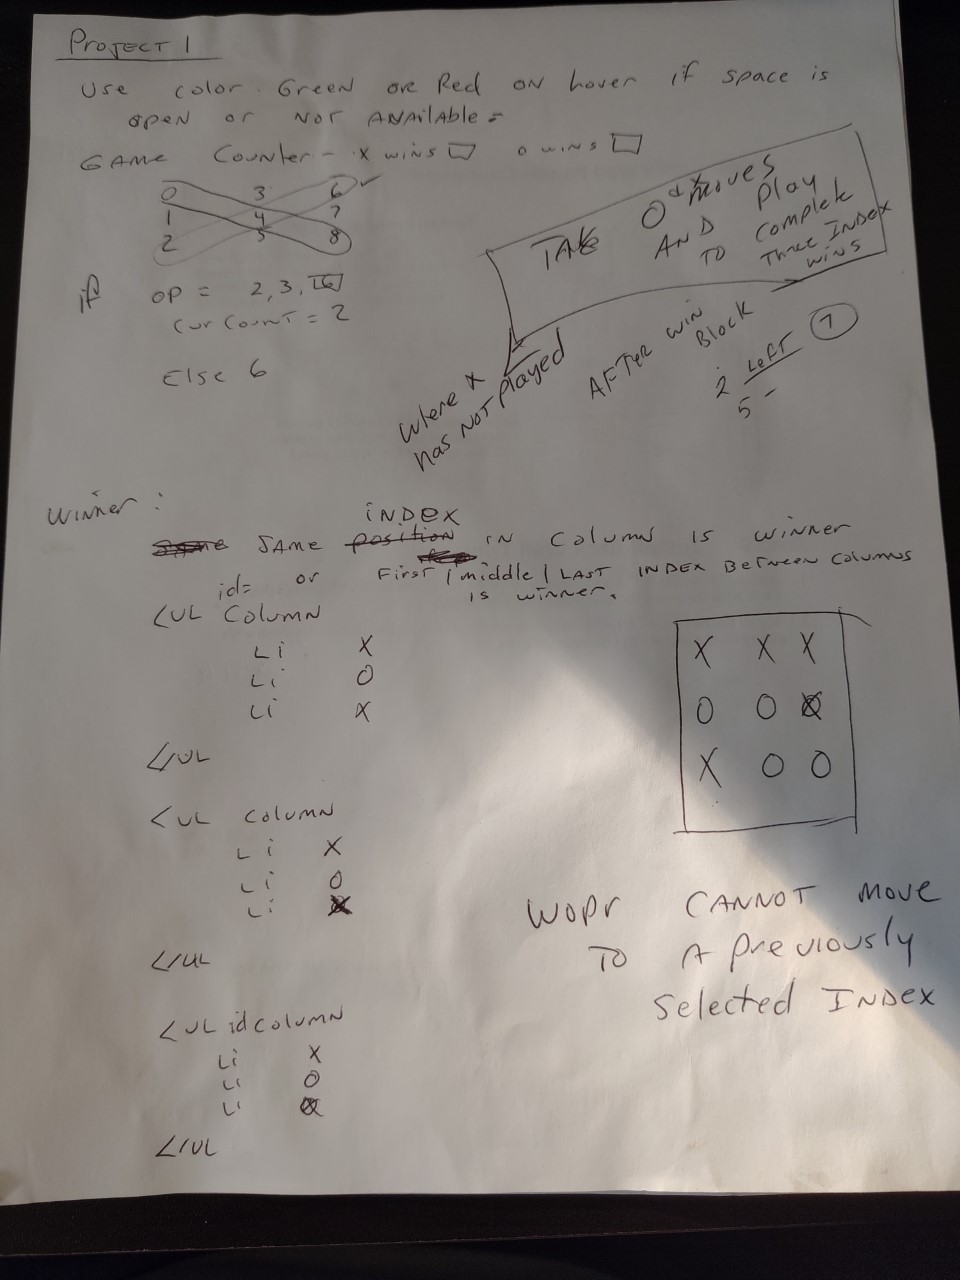 PROJECT 1
USE color. Green or Red on hover if space is
open or NOT AVAilable =
GAME Counter - X wins o wins
0 3 6
1 4 7
2 5 8
if op = 2, 3, 6
Cur Count = 2
Else 6
TAKE O moves
AND Play
TO complete
Three INDEX
wins
Where X
has NOT Played
AFTER WIN
Block
2 Left 7
5 -
WINNER :
INDEX
SAME position IN Column IS WINNER
id= or First / middle / LAST INDEX BETWEEN Columns
is winner.
<UL Column
Li X
Li O
Li X
</UL
X X X
O O X
X O O
<UL column
Li X
Li O
Li X
</UL
WOPR CANNOT MOVE
TO A previously
selected INDEX
<UL id column
Li X
Li O
Li
</UL